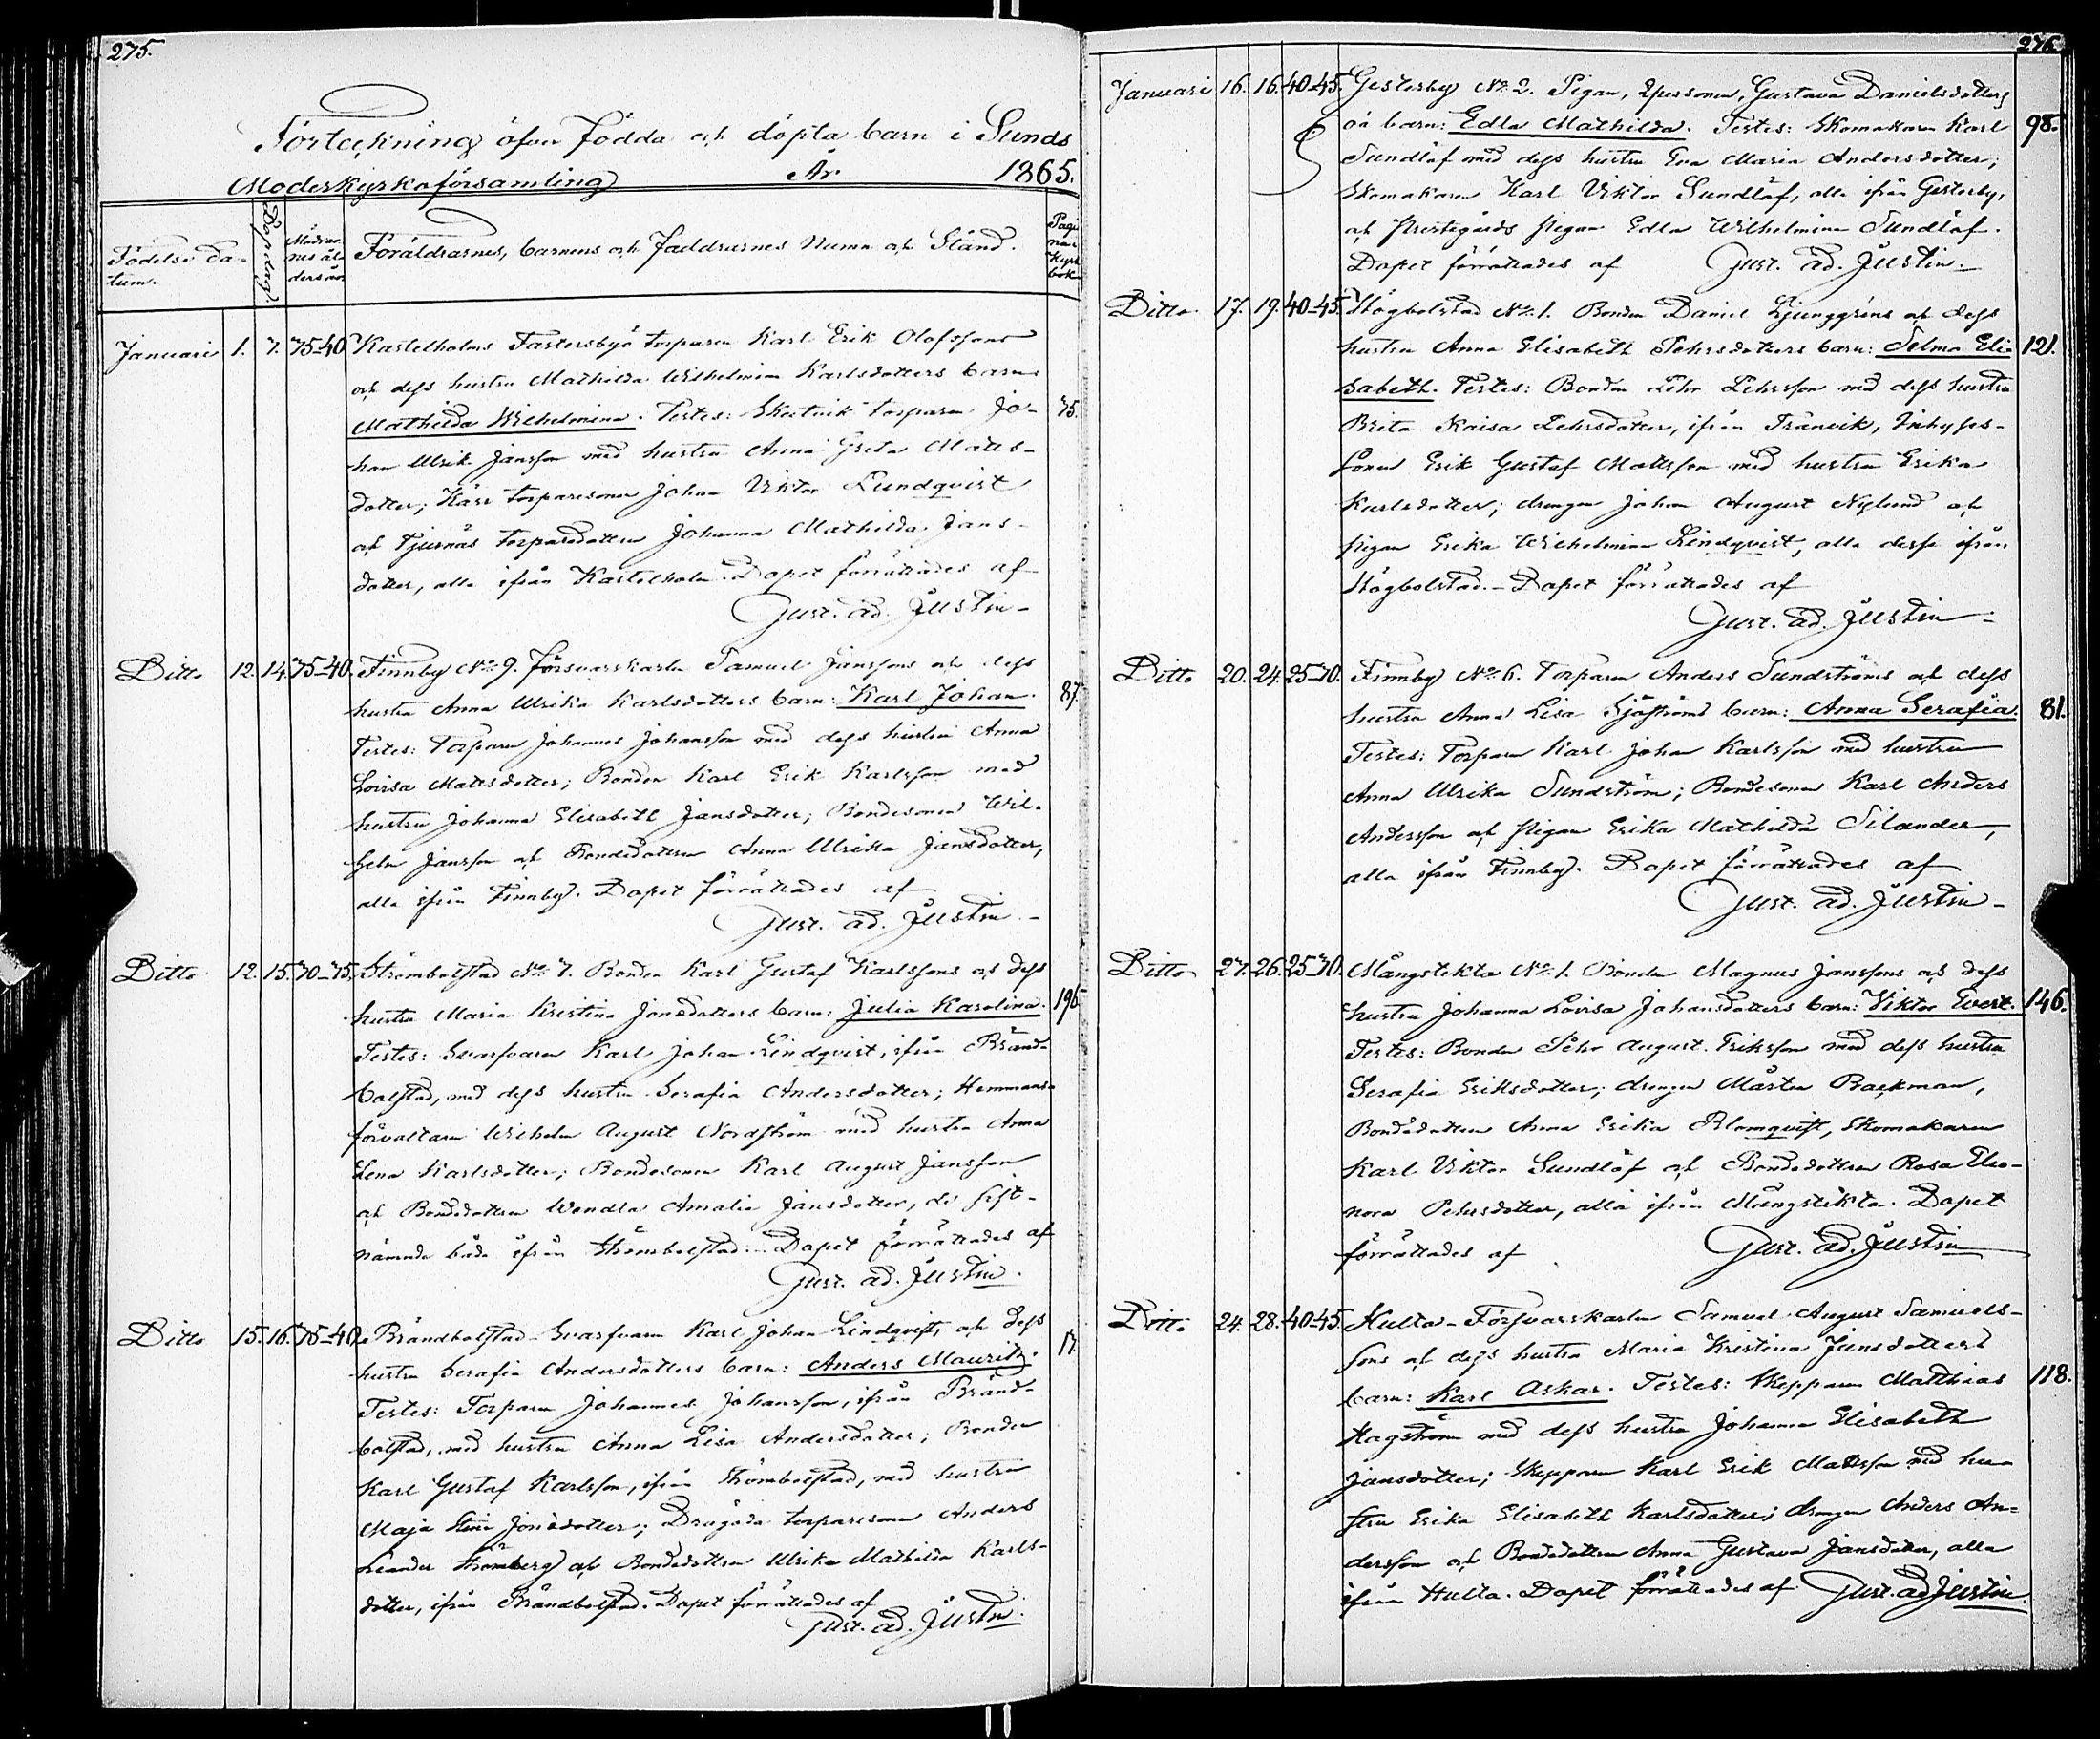 275.
Förteckning öfver Födda och döpta barn i Sunds
Moderkyrkoförsamling År 1865.
Födelse da-
tum.
Dopdag
Mödrar-
nes ål-
dersår
Föräldrarnes, barnens och Faddrarnes Namn och Stånd.
Pagi
na i
Kyrk
bok
Januari 1. 7. 35-40. Kastelholms Fastersbyö torparen Karl Erik Olofssons
och dess hustru Mathilda Wilhelmina Karlsdotters barn
Mathilda Wilhelmina. Testes: torparen Jo- 75.
han Ulrik Jansson med hustru Anna Greta Matts-
dotter; Kärr torparesonen Johan Viktor Lundqvist
och Tjurnäs torparedottern Johanna Mathilda Jans-
dotter, alla ifrån Kastelholm. Dopet förrättades af
Gust. Ad. Justin
Ditto 12. 14. 35-40. Finnby No 9. Försvarskarlen Samuel Janssons och dess
hustru Anna Ulrika Karlsdotters barn: Karl Johan. 87.
Testes: Torparen Johannes Johansson med dess hustru Anna
Lovisa Mattsdotter; Bonden Karl Erik Karlsson med
hustru Johanna Elisabeth Jansdotter; Bondesonen Wil-
helm Jansson och Bondedottren Anna Ulrika Jansdotter,
alla ifrån Finnby. Dopet förrättades af
Gust. Ad. Justin
Ditto 12. 15. 30-35. Strömbolstad No 7. Bonden Karl Gustaf Karlssons och dess
hustru Maria Kristina Jonsdotters barn: Julia Karolina. 196
Testes: Svarfvaren Karl Johan Lindqvist, ifrån Bränd-
bolstad, med dess hustru Serafia Andersdotter; Hemmans-
förvaltaren Wilhelm August Nordström med hustru Anna
Lena Karlsdotter; Bondesonen Karl August Jansson
och Bondedottren Wendla Amalia Jansdotter, de sist-
nämnde båda ifrån Strömbolstad. Dopet förrättades af
Gust. Ad. Justin.
Ditto 15. 16. 35-40. Brändbolstad Svarfvaren Karl Johan Lindqvists och dess 17.
hustru Serafia Andersdotters barn: Anders Mauritz.
Testes: Torparen Johannes Johansson, ifrån Bränd-
bolstad, med hustru Anna Lisa Andersdotter; Bonden
Karl Gustaf Karlsson, ifrån Strömbolstad, med hustru
Maja Stina Jonsdotter; torparesonen Anders
Leander Strömberg och Bondedottren Ulrika Mathilda Karls-
dotter, ifrån Brändbolstad. Dopet förrättades af
Gust. Ad. Justin.
276.
Januari 16. 16. 40-45. Gesterby No 2. Pigan, Gustava Danielsdotters
oä barn: Edla Mathilda. Testes: Skomakaren Karl 98.
Sundlöf med dess hustru Eva Maria Andersdotter;
Skomakaren Karl Viktor Sundlöf, alla ifrån Gesterby,
och Prestgårds pigan Edla Wilhelmina Sundlöf.
Dopet förrättades af Gust. Ad. Justin.
Ditto 17. 19. 40-45. Högbolstad No 1. Bonden Daniel Ljunggréns och dess
hustru Anna Elisabeth Pehrsdotters barn: Selma Eli- 121.
sabeth. Testes: Bonden Pehr Pehrsson med dess hustru
Brita Kaisa Pehrsdotter, ifrån Tranvik, Inhyses-
sonen Erik Gustaf Mattsson med hustru Erika
Karlsdotter; drengen Johan August Nylund och
pigan Erika Wilhelmina Lindqvist, alla dessa ifrån
Högbolstad. Dopet förrättades af
Gust. Ad. Justin
Ditto 20. 24. 25-30. Finnby No 6. Torparen Anders Sundströms och dess
hustru Anna Lisa Sjöströms barn: Anna Serafia. 81.
Testes: Torparen Karl Johan Karlsson med hustru
Anna Ulrika Sundström; Bondesonen Karl Anders
Andersson och pigan Erika Mathilda Silander,
alla ifrån Finnby. Dopet förrättades af
Gust. Ad. Justin
Ditto 27. 26. 25-30. Mångstekta No 1. Bonden Magnus Janssons och dess
hustru Johanna Lovisa Johansdotters barn: Viktor Evert. 146.
Testes: Bonden Pehr August Eriksson med dess hustru
Serafia Eriksdotter; drengen Mårten Backman,
Bondedottren Anna Erika Blomqvist, Skomakaren
Karl Viktor Sundlöf och Bondedottren Rosa Eleo-
nora Pehrsdotter, alla ifrån Mångstekta. Dopet
förrättades af Gust. Ad. Justin
Ditto 24. 28. 40-45. Hulta Försvarskarlen Samuel August Samuels-
sons och dess hustru Maria Kristina Jansdotters
barn: Karl Oskar. Testes: Skepparen Matthias 118.
Hagström med dess hustru Johanna Elisabeth
Jansdotter; Skepparen Karl Erik Mattsson med hu-
stru Erika Elisabeth Karlsdotter; drengen Anders An-
dersson och Bondedottren Anna Gustava Jansdotter, alla
ifrån Hulta. Dopet förrättades af Gust. Ad. Justin.